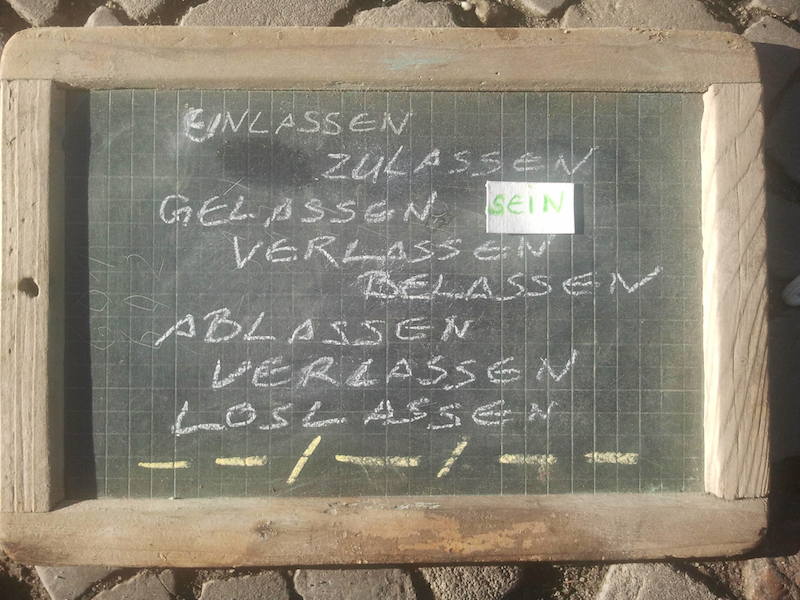 EINLASSEN
ZULASSEN
GELASSEN SEIN
VERLASSEN
BELASSEN
ABLASSEN
VERLASSEN
LOSLASSEN
— — / — / — —